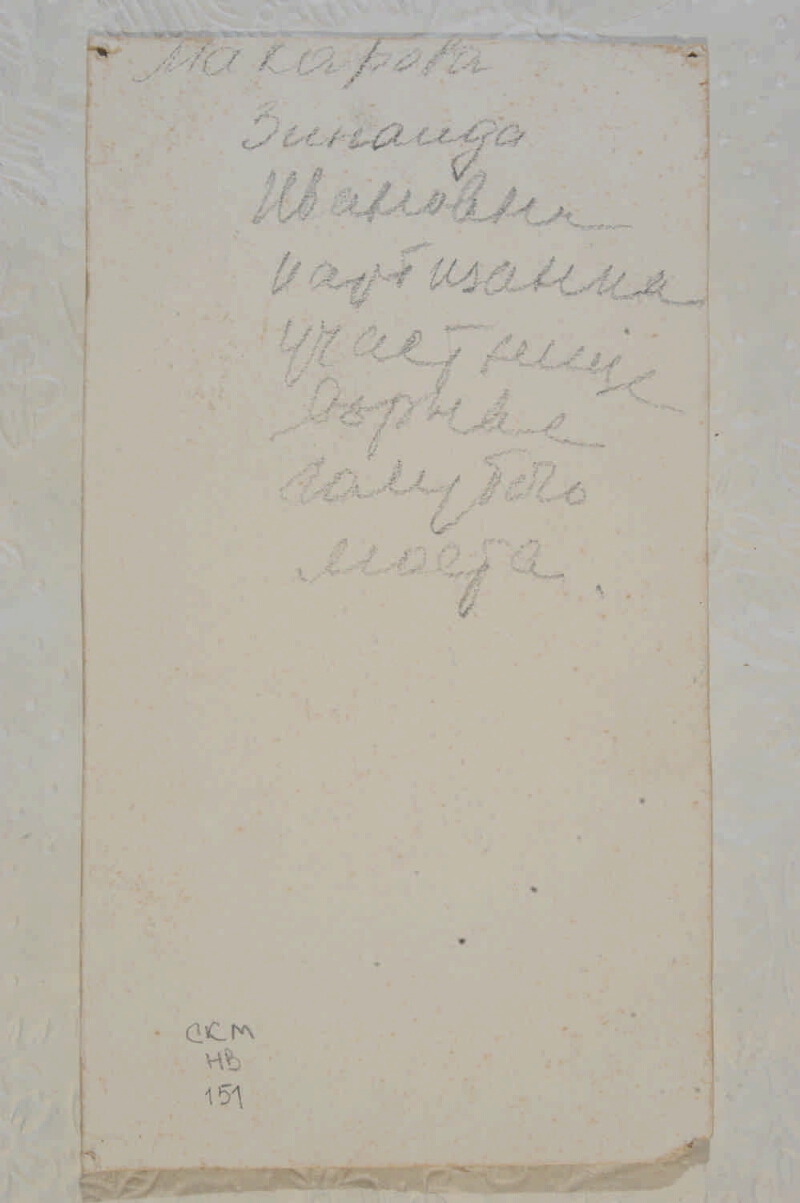 Макарова
Зинаида
Ивановна
партизанка
участница
взрыва
голубого
моста.
СКМ
НВ
151